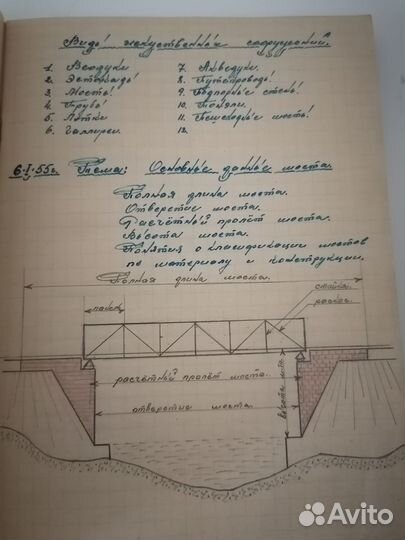 Виды искусственных сооружений.
1. Виадуки.
2. Эстакады
3. Мосты
4. Трубы
5. Лотки
6. Галлереи.
7. Акведуки.
8. Путепроводы
9. Подпорные стены
10. Тонели.
11. Пешеходные мосты!
12.
6-I-55г. Тема: Основные данные моста.
Полная длина моста.
Отверстие моста.
Расчётный пролёт моста.
Высота моста.
Понятия о класификации мостов
по материалу и конструкции.
Полная длина моста.
стойка.
панель
раскос.
расчётный пролёт моста.
высота моста
отверстие моста.
Avito